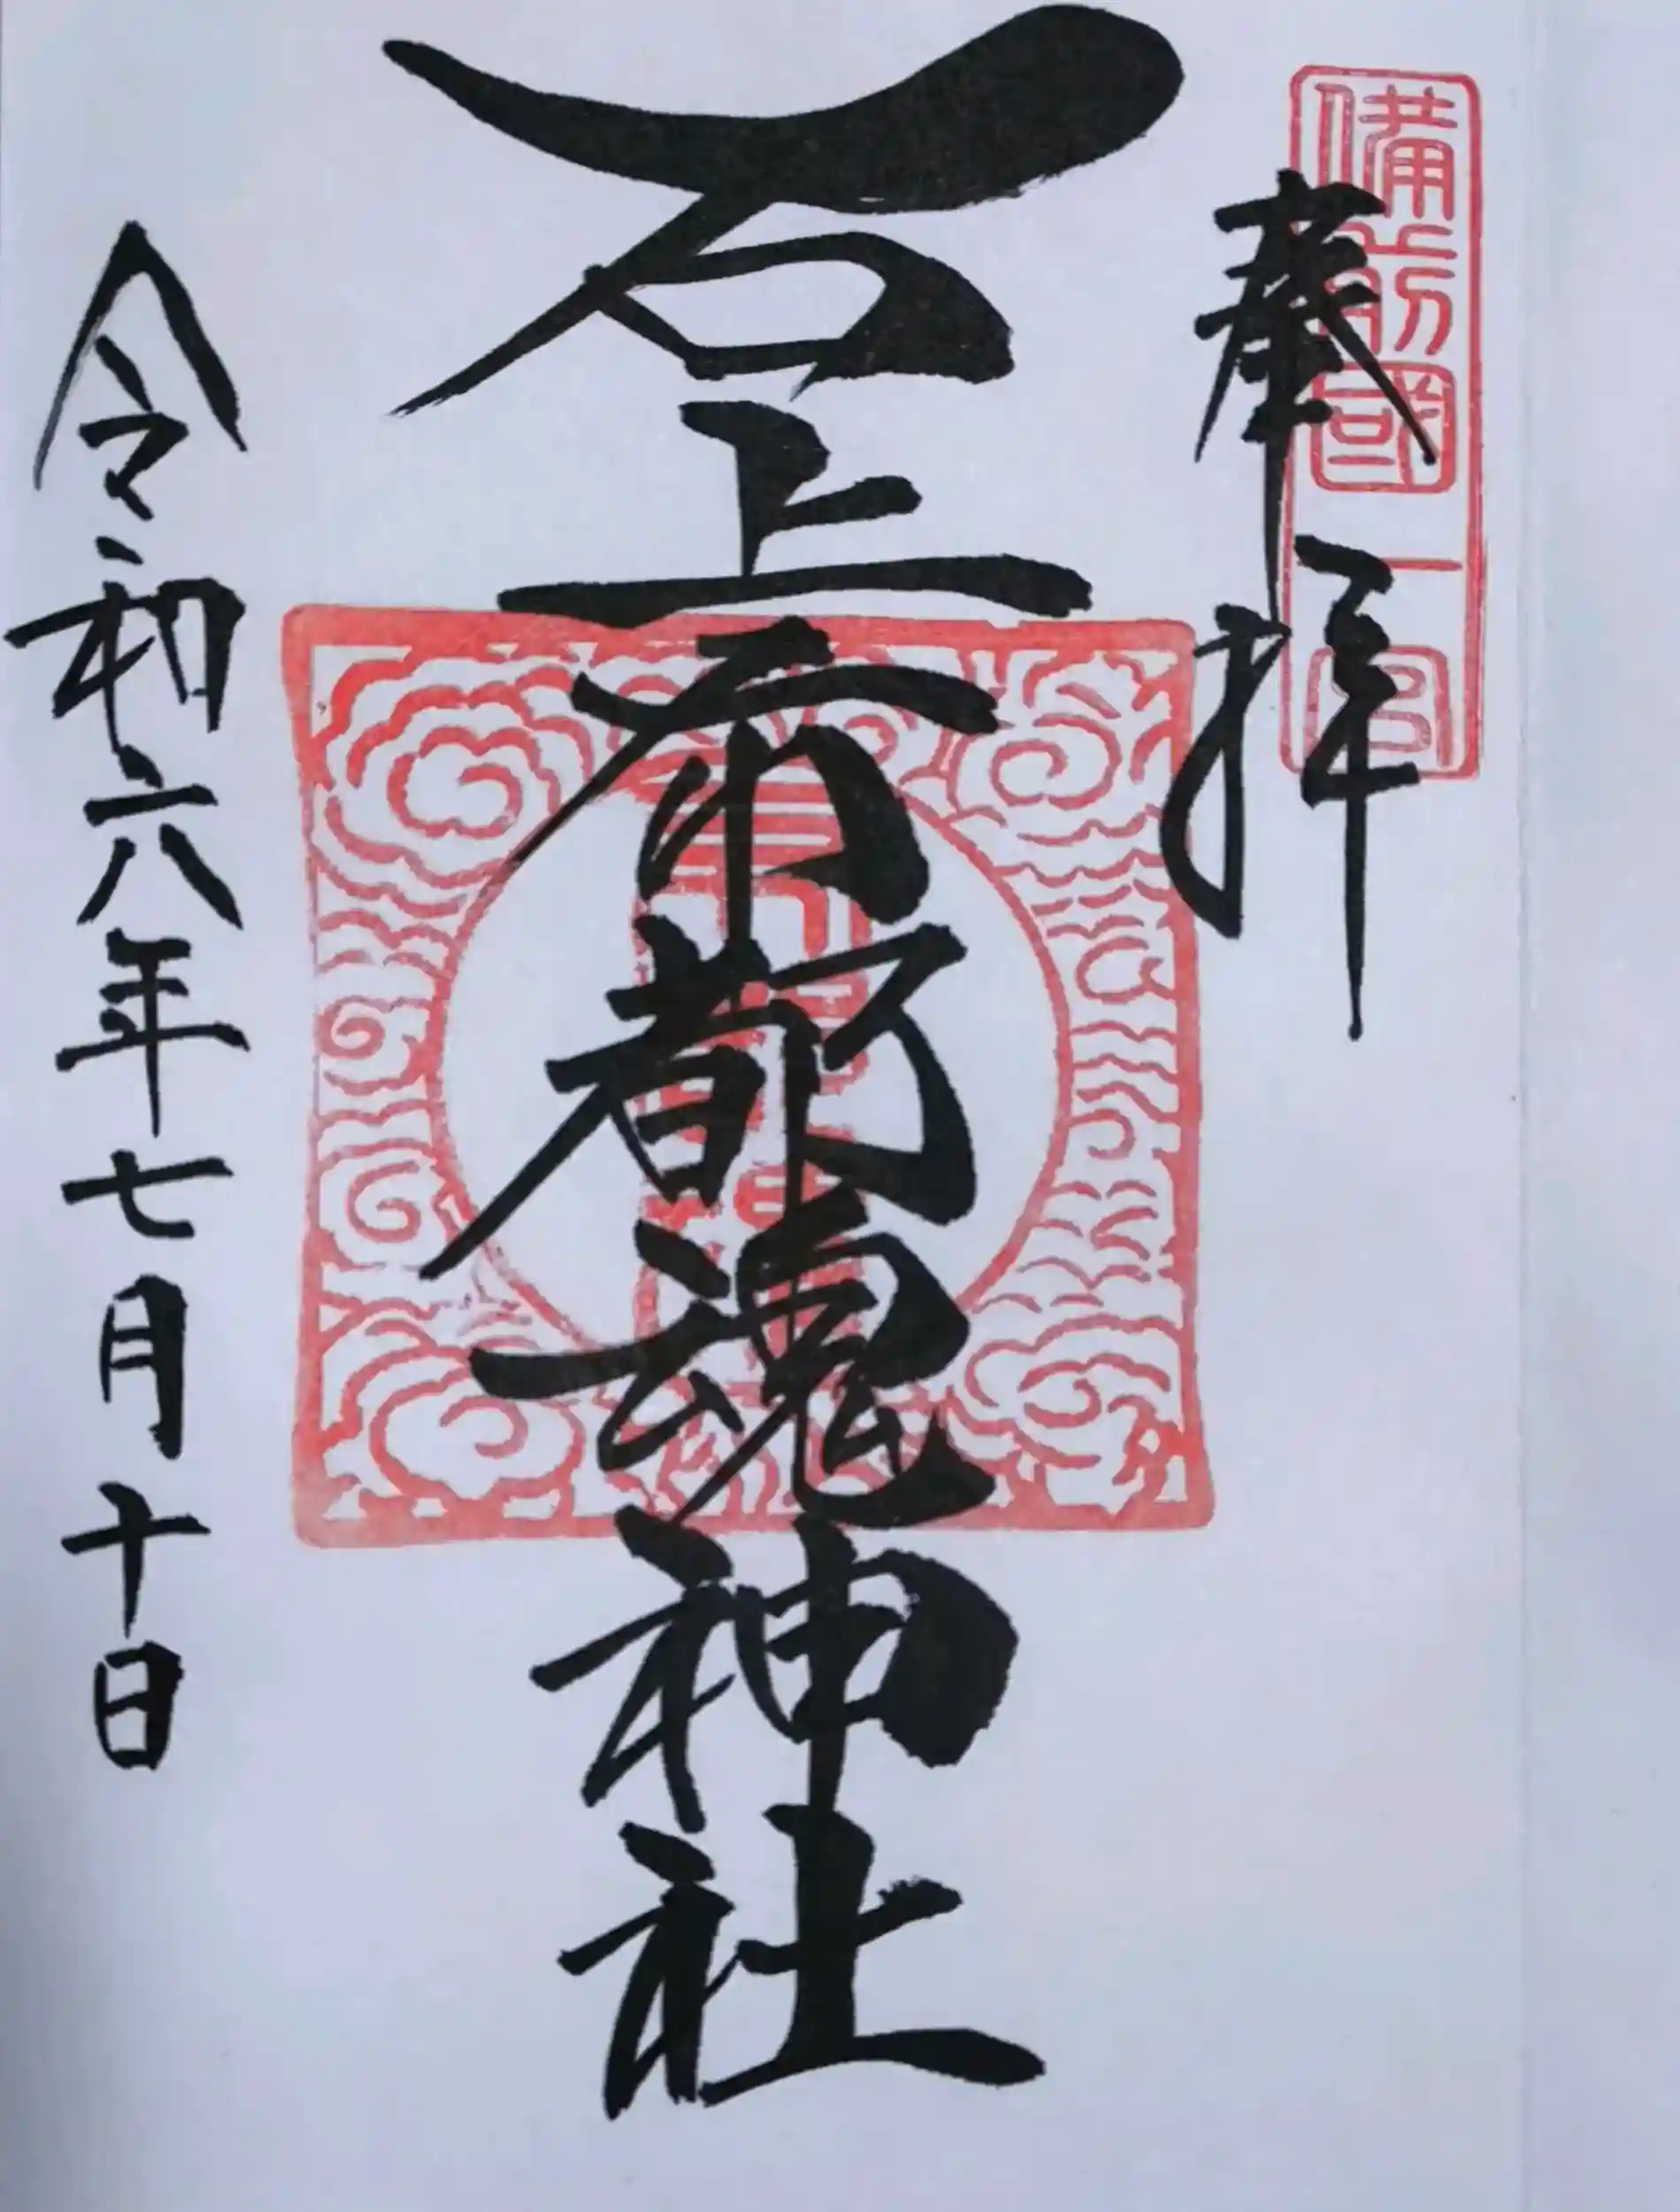 備前國一宮
奉拝
石上布都魂神社
令和六年七月十日